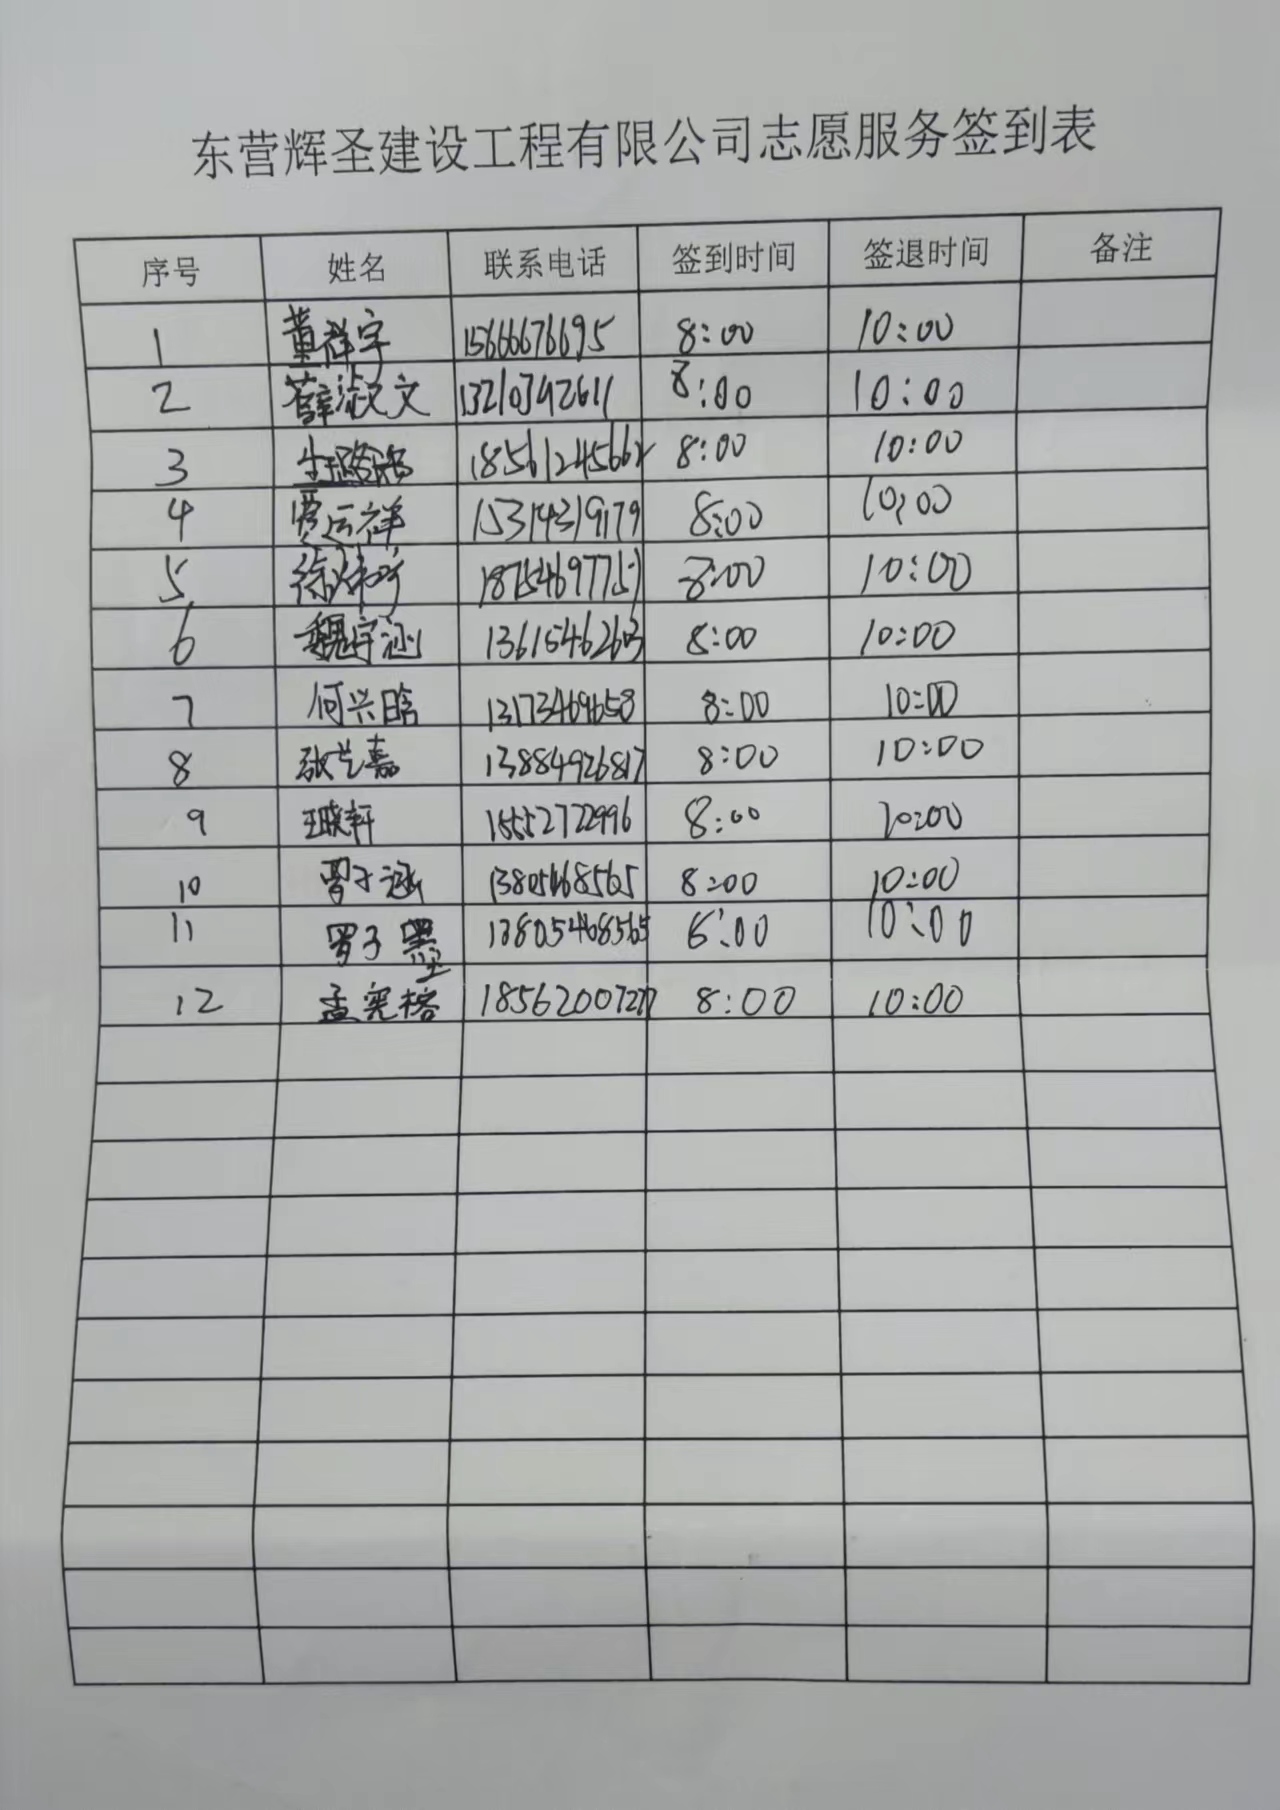 东营辉圣建设工程有限公司志愿服务签到表
序号 姓名 联系电话 签到时间 签退时间 备注
1 董祥宇 15666676695 8:00 10:00
2 薛淑文 13210342611 8:00 10:00
3 18561245662 8:00 10:00
4 贾运祥 15314319179 8:00 10:00
5 18754697757 8:00 10:00
6 魏宇涵 1361546263 8:00 10:00
7 何兴晗 13173469658 8:00 10:00
8 张艺嘉 13884926817 8:00 10:00
9 王晓轩 15552722996 8:00 10:00
10 罗子涵 13805468565 8:00 10:00
11 罗子墨 13805468565 6:00 10:00
12 孟宪榕 18562007277 8:00 10:00